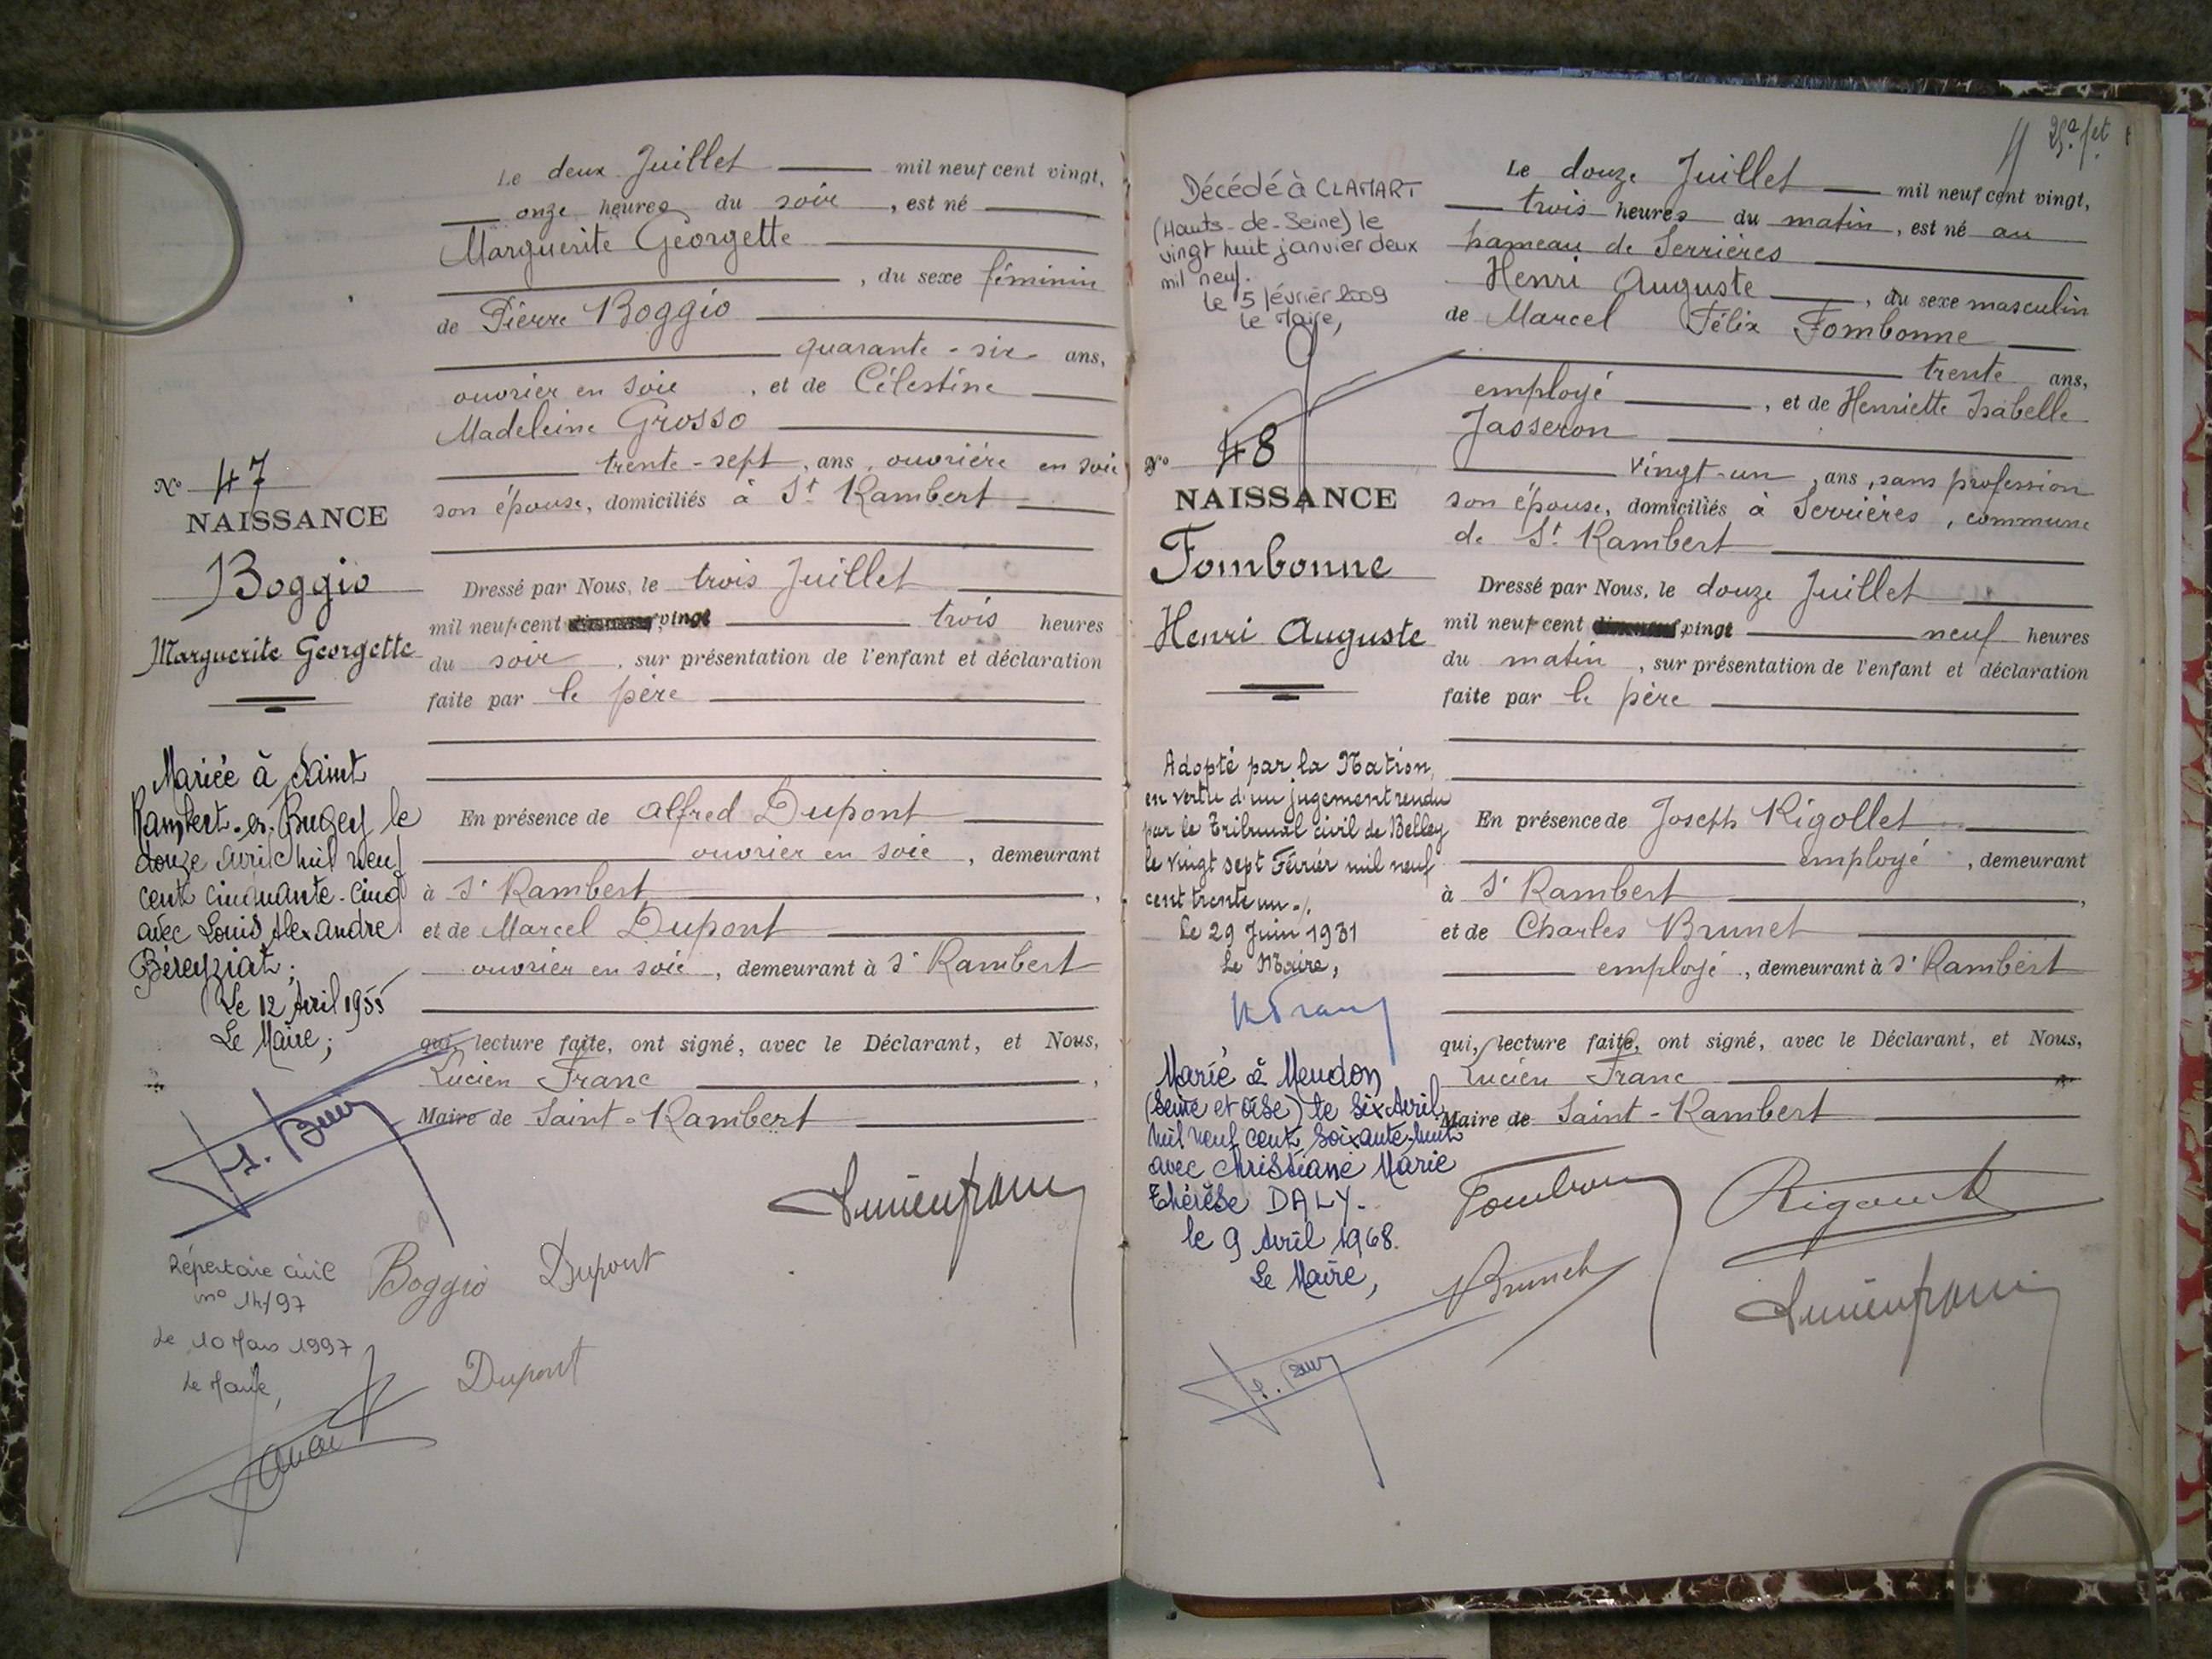 Le deux Juillet mil neuf cent vingt,
onze heures du soir, est né
Marguerite Georgette
, du sexe féminin
de Pierre Boggio
quarante-six ans,
ouvrier en soie, et de Célestine
Madeleine Grosso
trente-sept, ans, ouvrière en soie
son épouse, domiciliés à St Rambert
Dressé par Nous, le trois Juillet
mil neuf cent vingt trois heures
du soir, sur présentation de l'enfant et déclaration
faite par le père
En présence de Alfred Dupont
ouvrier en soie, demeurant
à St Rambert,
et de Marcel Dupont
ouvrier en soie, demeurant à St Rambert
qui, lecture faite, ont signé, avec le Déclarant, et Nous,
Lucien Franc,
Maire de Saint-Rambert
Lucien Franc
Boggio Dupont
Dupont
No 47
NAISSANCE
Boggio
Marguerite Georgette
Mariée à Saint
Rambert-en-Bugey le
douze avril mil neuf
cent cinquante-cinq
avec Louis Alexandre
Béreyziat;
Le 12 Avril 1955
Le Maire;
Répertoire civil
no 14/97
Le 10 Mars 1997
Le Maire,
Le douze Juillet mil neuf cent vingt,
trois heures du matin, est né au
hameau de Serrières
Henri Auguste, du sexe masculin
de Marcel Félix Fombonne
trente ans,
employé, et de Henriette Isabelle
Jasseron
vingt-un, ans, sans profession
son épouse, domiciliés à Serrières, commune
de St Rambert
Dressé par Nous, le douze Juillet
mil neuf cent vingt neuf heures
du matin, sur présentation de l'enfant et déclaration
faite par le père
En présence de Joseph Rigollet
employé, demeurant
à St Rambert,
et de Charles Brunet
employé, demeurant à St Rambert
qui, lecture faite, ont signé, avec le Déclarant, et Nous,
Lucien Franc
Maire de Saint-Rambert
Brunet
Lucien Franc
Décédé à CLAMART
(Hauts-de-Seine) le
vingt huit janvier deux
mil neuf.
le 5 février 2009
Le Maire,
No 48
NAISSANCE
Fombonne
Henri Auguste
Adopté par la Nation,
en vertu d'un jugement rendu
par le Tribunal civil de Belley
le vingt sept Février mil neuf
cent trente un./.
Le 29 Juin 1931
Le Maire,
Marié à Meudon
(Seine et Oise) le six Avril
mil neuf cent soixante-huit
avec Christiane Marie
Thérèse DALY.
le 9 Avril 1968.
Le Maire,